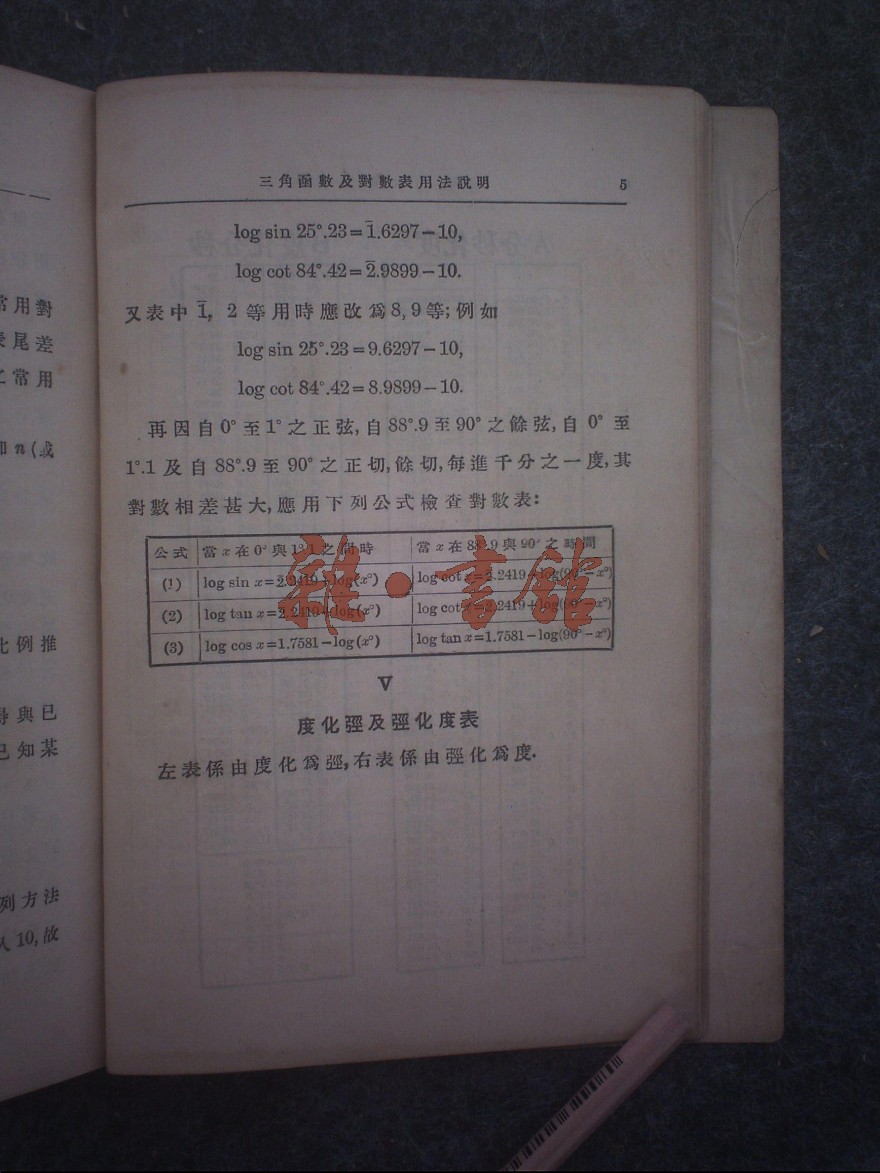 三角函數及對數表用法說明 5
log sin 25°.23=1̅.6297−10,
log cot 84°.42=2̅.9899−10.
又表中1̅, 2等用時應改爲8, 9等; 例如
log sin 25°.23=9.6297−10,
log cot 84°.42=8.9899−10.
再因自0°至1°之正弦, 自88°.9至90°之餘弦, 自0°至
1°.1及自88°.9至90°之正切, 餘切, 每進千分之一度, 其
對數相差甚大, 應用下列公式檢查對數表:
公式 當x在0°與1°.1之間時 當x在88°.9與90°之時間
(1) log sin x=2̅.2419+log(x°) log cot x=2̅.2419+log(90°−x°)
(2) log tan x=2̅.2419+log(x°) log cot x=2̅.2419+log(90°−x°)
(3) log cos x=1.7581−log(x°) log tan x=1.7581−log(90°−x°)
雜·書館
V
度化弳及弳化度表
左表係由度化爲弳, 右表係由弳化爲度.
常用對
尾差
常用
n (或
比例推
與已
已知某
列方法
10, 故